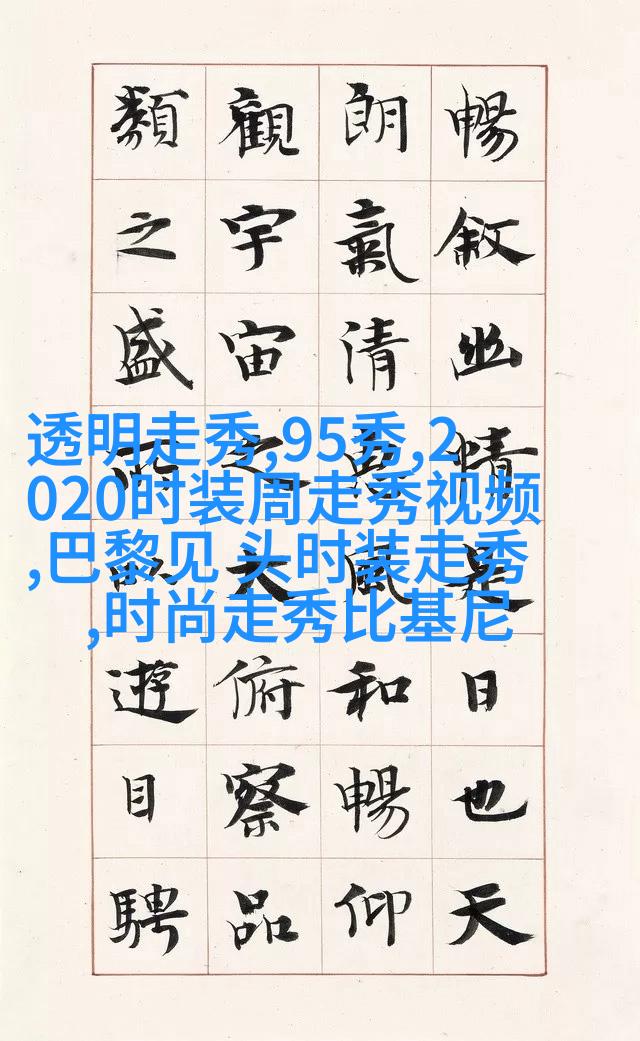 暢敘幽情是日也天
朗氣清惠風和暢仰
觀宇宙之大俯察品
類之盛所以遊目騁
透明走秀,95秀,2
020时装周走秀视频
,巴黎见 头时装走秀
,时尚走秀比基尼